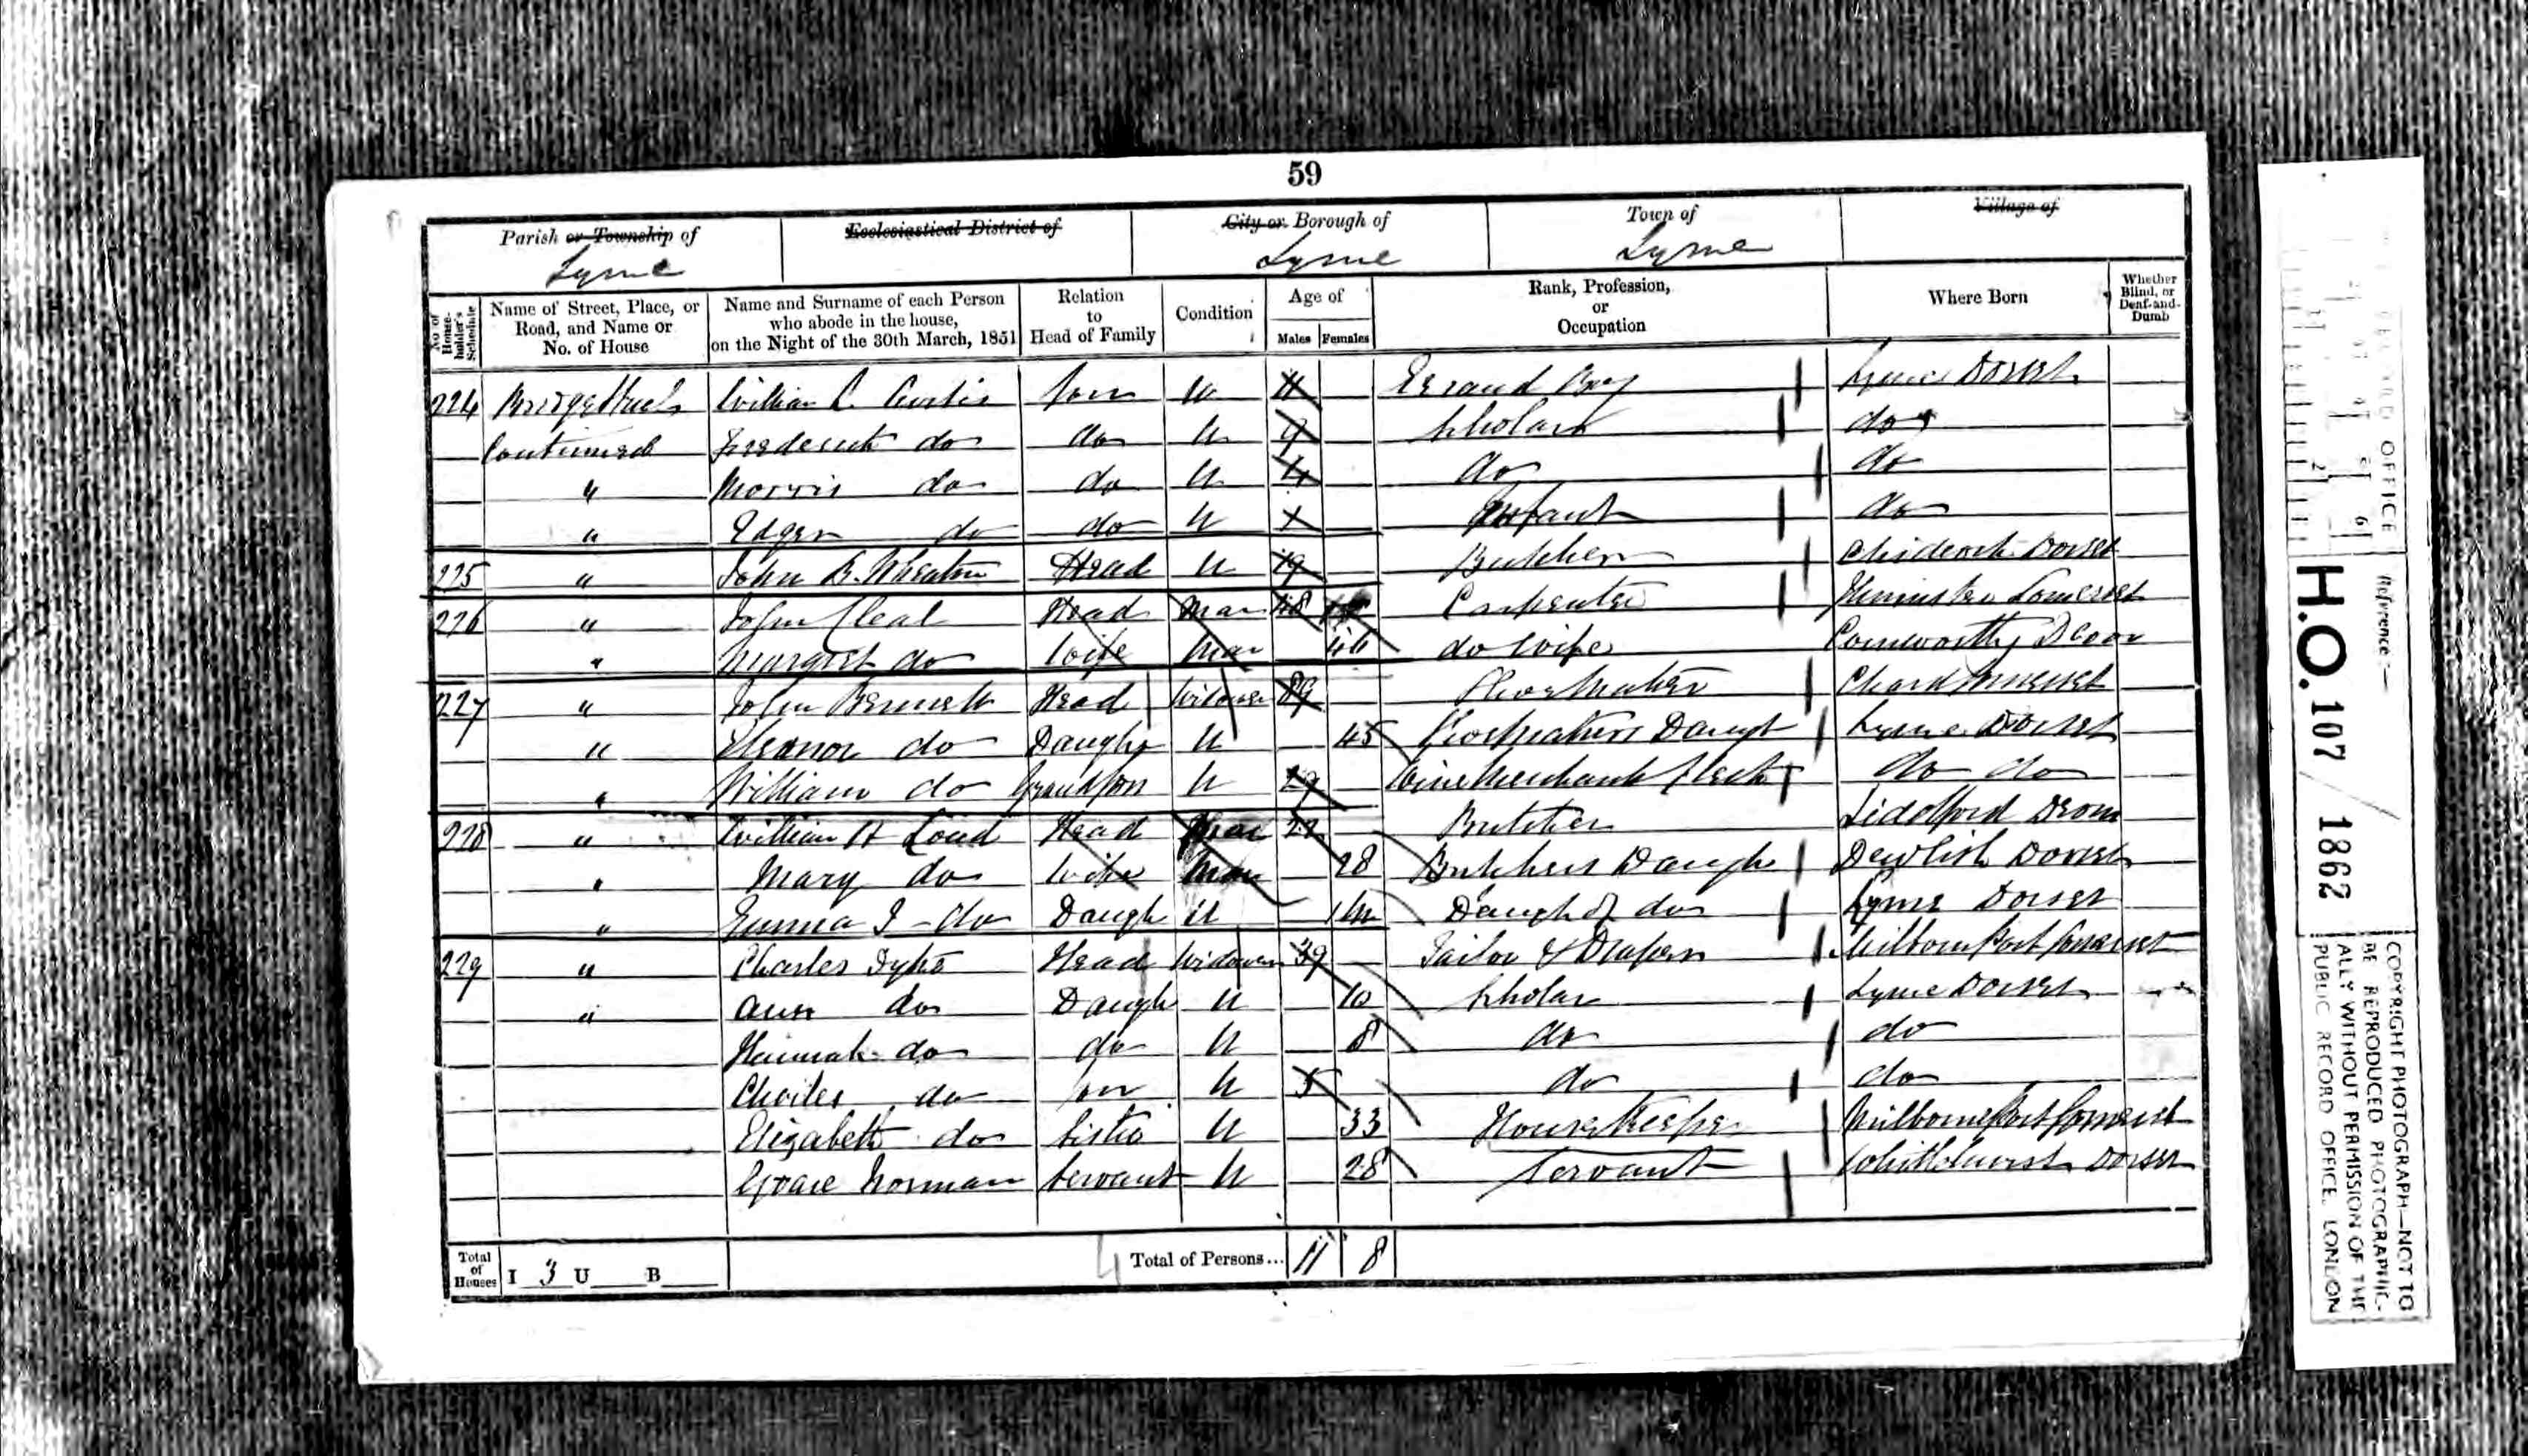 59
Parish or Township of
Lyme
Ecclesiastical District of
City or Borough of
Lyme
Town of
Lyme
Village of
No. of House-holder's Schedule
Name of Street, Place, or Road, and Name or No. of House
Name and Surname of each Person who abode in the house, on the Night of the 30th March, 1851
Relation to Head of Family
Condition
Age of
Males Females
Rank, Profession, or Occupation
Where Born
Whether Blind, or Deaf-and-Dumb
224 Bridge Street William C. Curtis Son U 11 Errand Boy Lyme Dorset
Continued Frederick do do U 9 Scholar do
" Morris do do U 4 do do
" Edgar do do U Infant do
225 " John B. Wheaton Head U 19 Butcher Chideock Dorset
226 " John Cleal Head Mar 48 Carpenter Ilminster Somerset
" Margret do Wife Mar 46 do Wife Cornworthy Devon
227 " John Bennett Head Widower 89 Shoe Maker Chard Somerset
" Eleanor do Daughr U 45 Shoemakers Daugt Lyme Dorset
" William do Grand Son U 19 Wine Merchant Clerk do do
228 " William H Loud Head Mar Butcher
" Mary do Wife Mar 28 Butchers Daugh Dewlish Dorset
" Emma J do Daugh U Daugh of do Lyme Dorset
229 " Charles Dyke Head Widower 39 Tailor & Draper Milborn Port Somerset
" Ann do Daugh U 10 Scholar Lyme Dorset
Hannah do do U 8 do do
Charles do Son U 5 do do
Elizabeth do Sister U 33 House Keeper Milborne Port Somerset
Grace Norman Servant U 28 Servant Dorset
Total of Houses I 3 U B
Total of Persons... 11 8
RECORD OFFICE
Reference:—
H.O. 107 / 1862
COPYRIGHT PHOTOGRAPH—NOT TO
BE REPRODUCED PHOTOGRAPHIC-
ALLY WITHOUT PERMISSION OF THE
PUBLIC RECORD OFFICE, LONDON